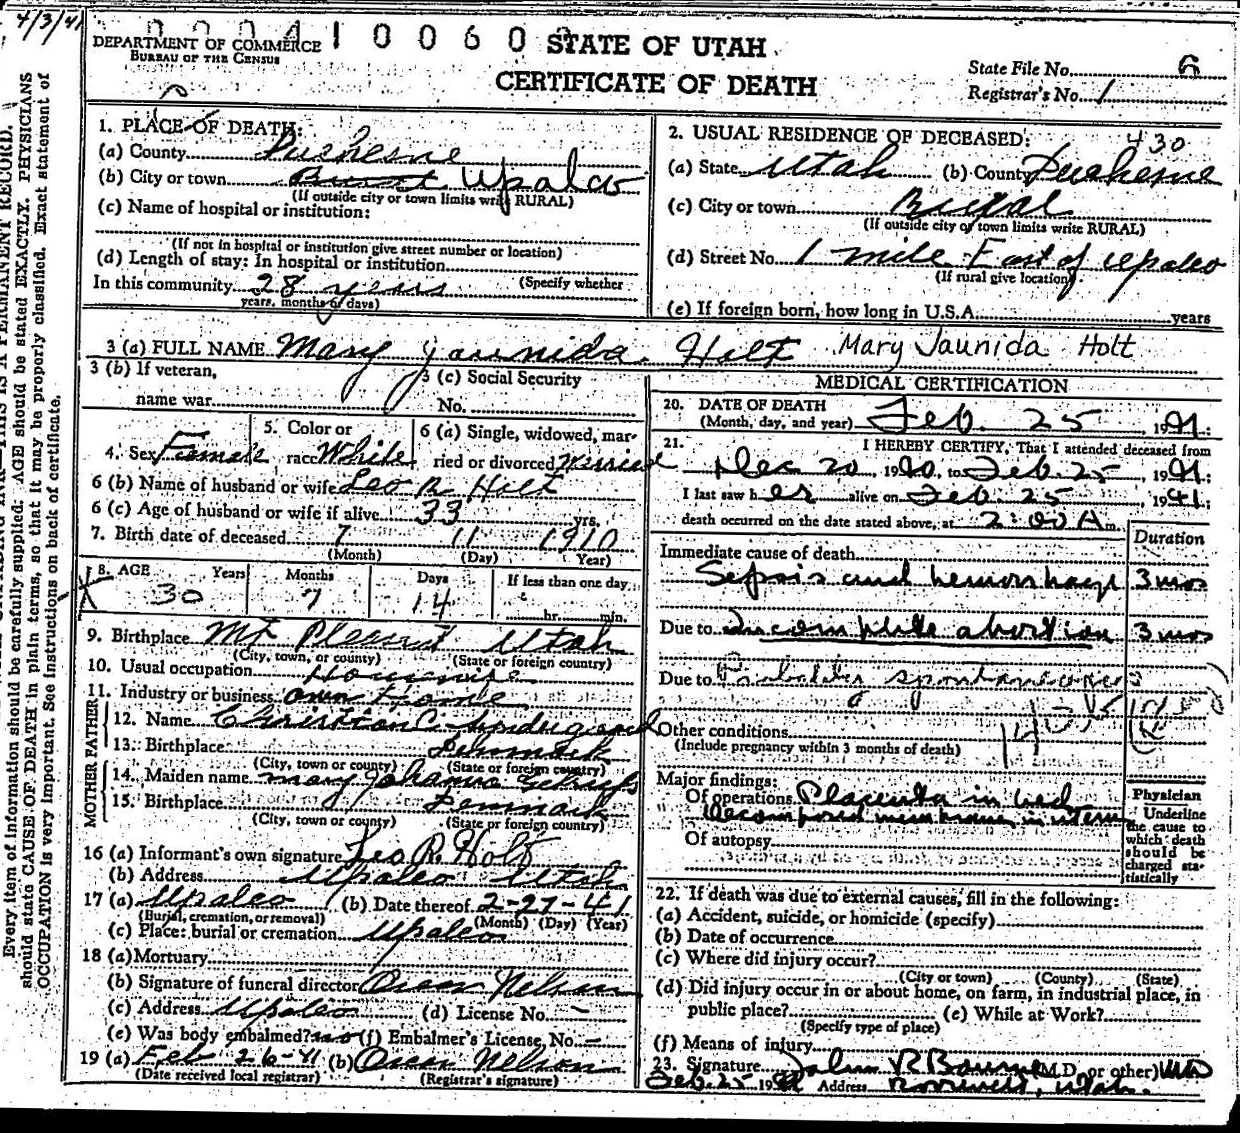 4/3/41
0 0 0 4 1 0 0 6 0
DEPARTMENT OF COMMERCE
BUREAU OF THE CENSUS
STATE OF UTAH
CERTIFICATE OF DEATH
State File No. 6
Registrar's No. 1
Every item of information should be carefully supplied. AGE should be stated EXACTLY. PHYSICIANS
should state CAUSE OF DEATH in plain terms, so that it may be properly classified. Exact statement of
OCCUPATION is very important. See instructions on back of certificate.
1. PLACE OF DEATH:
(a) County Duchesne
(b) City or town Upalco
(If outside city or town limits write RURAL)
(c) Name of hospital or institution:
(If not in hospital or institution give street number or location)
(d) Length of stay: In hospital or institution
In this community 28 years (Specify whether
years, months or days)
2. USUAL RESIDENCE OF DECEASED: 430
(a) State Utah (b) County Duchesne
(c) City or town Rural
(If outside city or town limits write RURAL)
(d) Street No. 1 mile East of Upalco
(If rural give location)
(e) If foreign born, how long in U.S.A. years
3 (a) FULL NAME Mary Jaunida Holt Mary Jaunida Holt
3 (b) If veteran,
name war
3 (c) Social Security
No.
4. Sex Female
5. Color or
race White
6 (a) Single, widowed, mar-
ried or divorced Married
6 (b) Name of husband or wife Leo R. Holt
6 (c) Age of husband or wife if alive 33 yrs.
7. Birth date of deceased 7 11 1910
(Month) (Day) (Year)
8. AGE Years Months Days If less than one day
30 7 14 hr. min.
9. Birthplace Mt Pleasant Utah
(City, town, or county) (State or foreign country)
10. Usual occupation Housewife
11. Industry or business own Home
FATHER
12. Name Christian C.
13. Birthplace Denmark
(City, town or county) (State or foreign country)
MOTHER
14. Maiden name Mary Johanna
15. Birthplace Denmark
(City, town or county) (State or foreign country)
16 (a) Informant's own signature Leo R. Holt
(b) Address Upalco Utah
17 (a) Upalco (b) Date thereof 2-27-41
(Burial, cremation, or removal) (Month) (Day) (Year)
(c) Place: burial or cremation Upalco
18 (a) Mortuary
(b) Signature of funeral director Oscar Nelson
(c) Address Upalco (d) License No. —
(e) Was body embalmed? no (f) Embalmer's License, No. —
19 (a) Feb 26-41 (b) Oscar Nelson
(Date received local registrar) (Registrar's signature)
MEDICAL CERTIFICATION
20. DATE OF DEATH
(Month, day, and year) Feb. 25, 1941.:
21. I HEREBY CERTIFY, That I attended deceased from
Dec 20, 1940, to Feb. 25, 1941.:
I last saw her alive on Feb. 25, 1941.:
death occurred on the date stated above, at 2:00 A m.
Duration
Immediate cause of death
Sepsis and hemorrhage 3 mos
Due to Incomplete abortion 3 mos
Due to Probably spontaneous
Other conditions
(Include pregnancy within 3 months of death)
Major findings:
Of operations Placenta in bed
Decomposed membrane in uterus
Of autopsy
Physician
Underline
the cause to
which death
should be
charged sta-
tistically
22. If death was due to external causes, fill in the following:
(a) Accident, suicide, or homicide (specify)
(b) Date of occurrence
(c) Where did injury occur?
(City or town) (County) (State)
(d) Did injury occur in or about home, on farm, in industrial place, in
public place? (e) While at Work?
(Specify type of place)
(f) Means of injury
23. Signature R Bourne (M.D. or other) MD
Feb. 25 1941 Address Roosevelt, Utah.